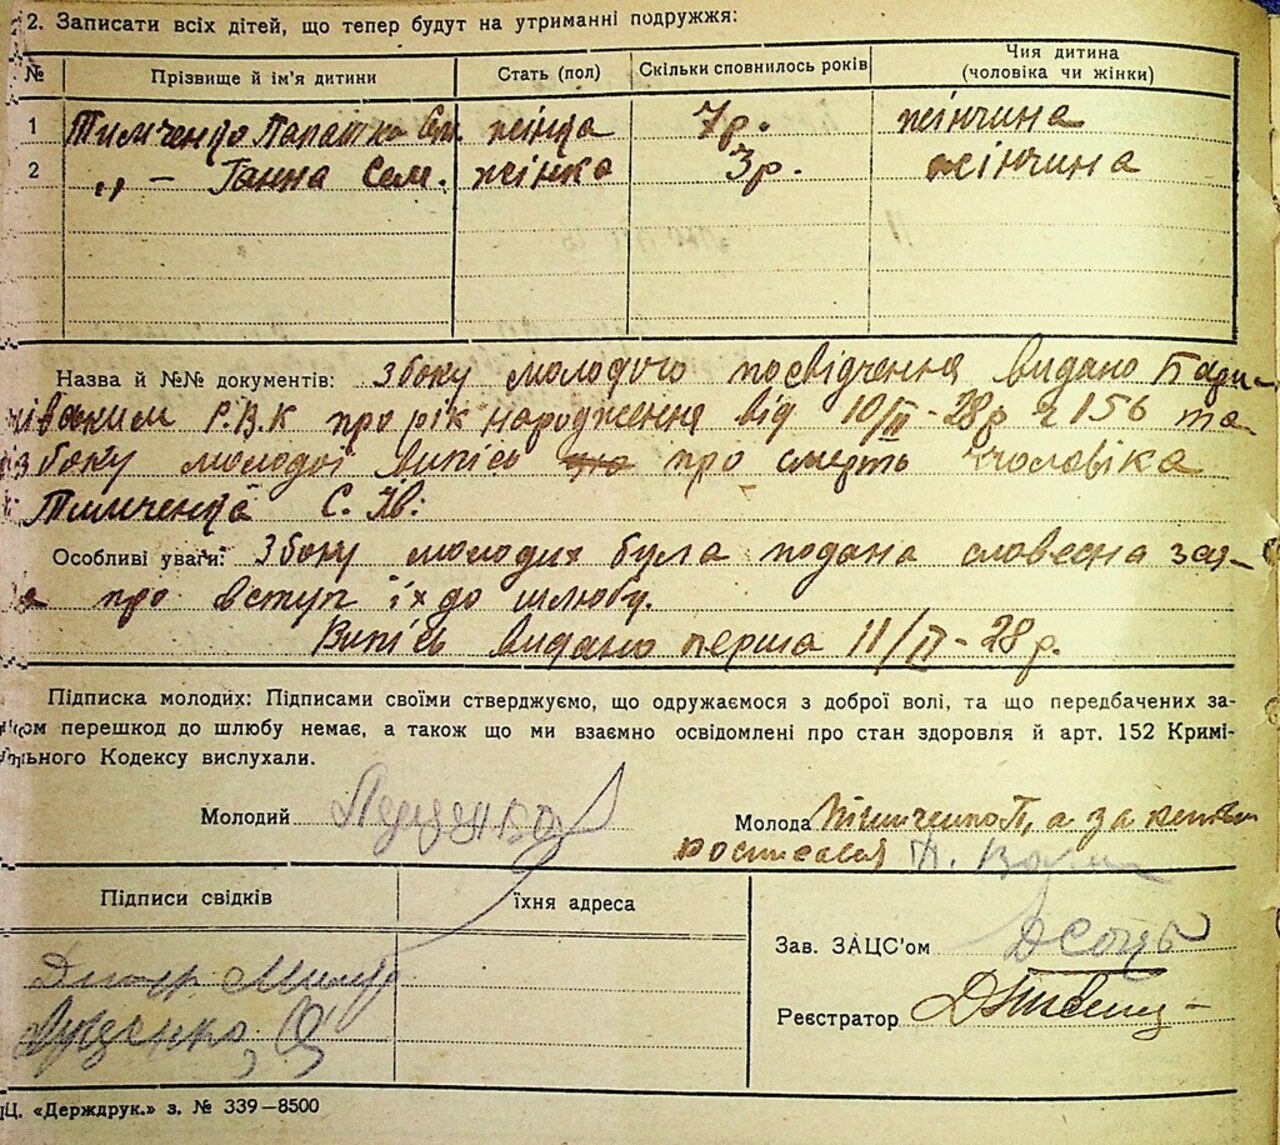 2. Записати всіх дітей, що тепер будут на утриманні подружжя:
№ Прізвище й ім'я дитини Стать (пол) Скільки сповнилось років Чия дитина (чоловіка чи жінки)
1 Тимченко Параска Сем. жінка 7р. жінчина
2 „ — Ганна Сем. жінка 3р. жінчина
Назва й №№ документів: Збоку молодого посвідчення видано
Р.В.К про рік народження від 10/II-28р ч 156 та
збоку молодої випісь про смерть чоловіка
Тимченка С. Ів.
Особливі уваги: Збоку молодих була подана словесна зая-
ва про вступ їх до шлюбу.
Випісь видано перша 11/II-28р.
Підписка молодих: Підписами своїми стверджуємо, що одружаємося з доброї волі, та що передбачених за-
ом перешкод до шлюбу немає, а також що ми взаємно освідомлені про стан здоровля й арт. 152 Кримі-
льного Кодексу вислухали.
Молодий
Молода Тимченко П, а за
росписався
Підписи свідків їхня адреса
Зав. ЗАЦС'ом
Луценко
Реєстратор
Ц. «Держдрук.» з. № 339—8500